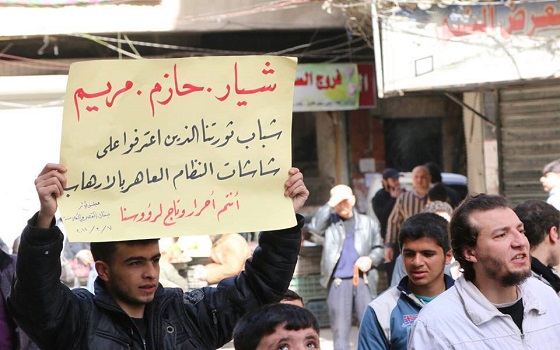 شيار . حازم . مريم
شباب ثورتنا الذين اعترفوا على
شاشات النظام العاهر بالارهاب
أنتم أحرار وتاج لرؤوسنا
فروج الس
معرض